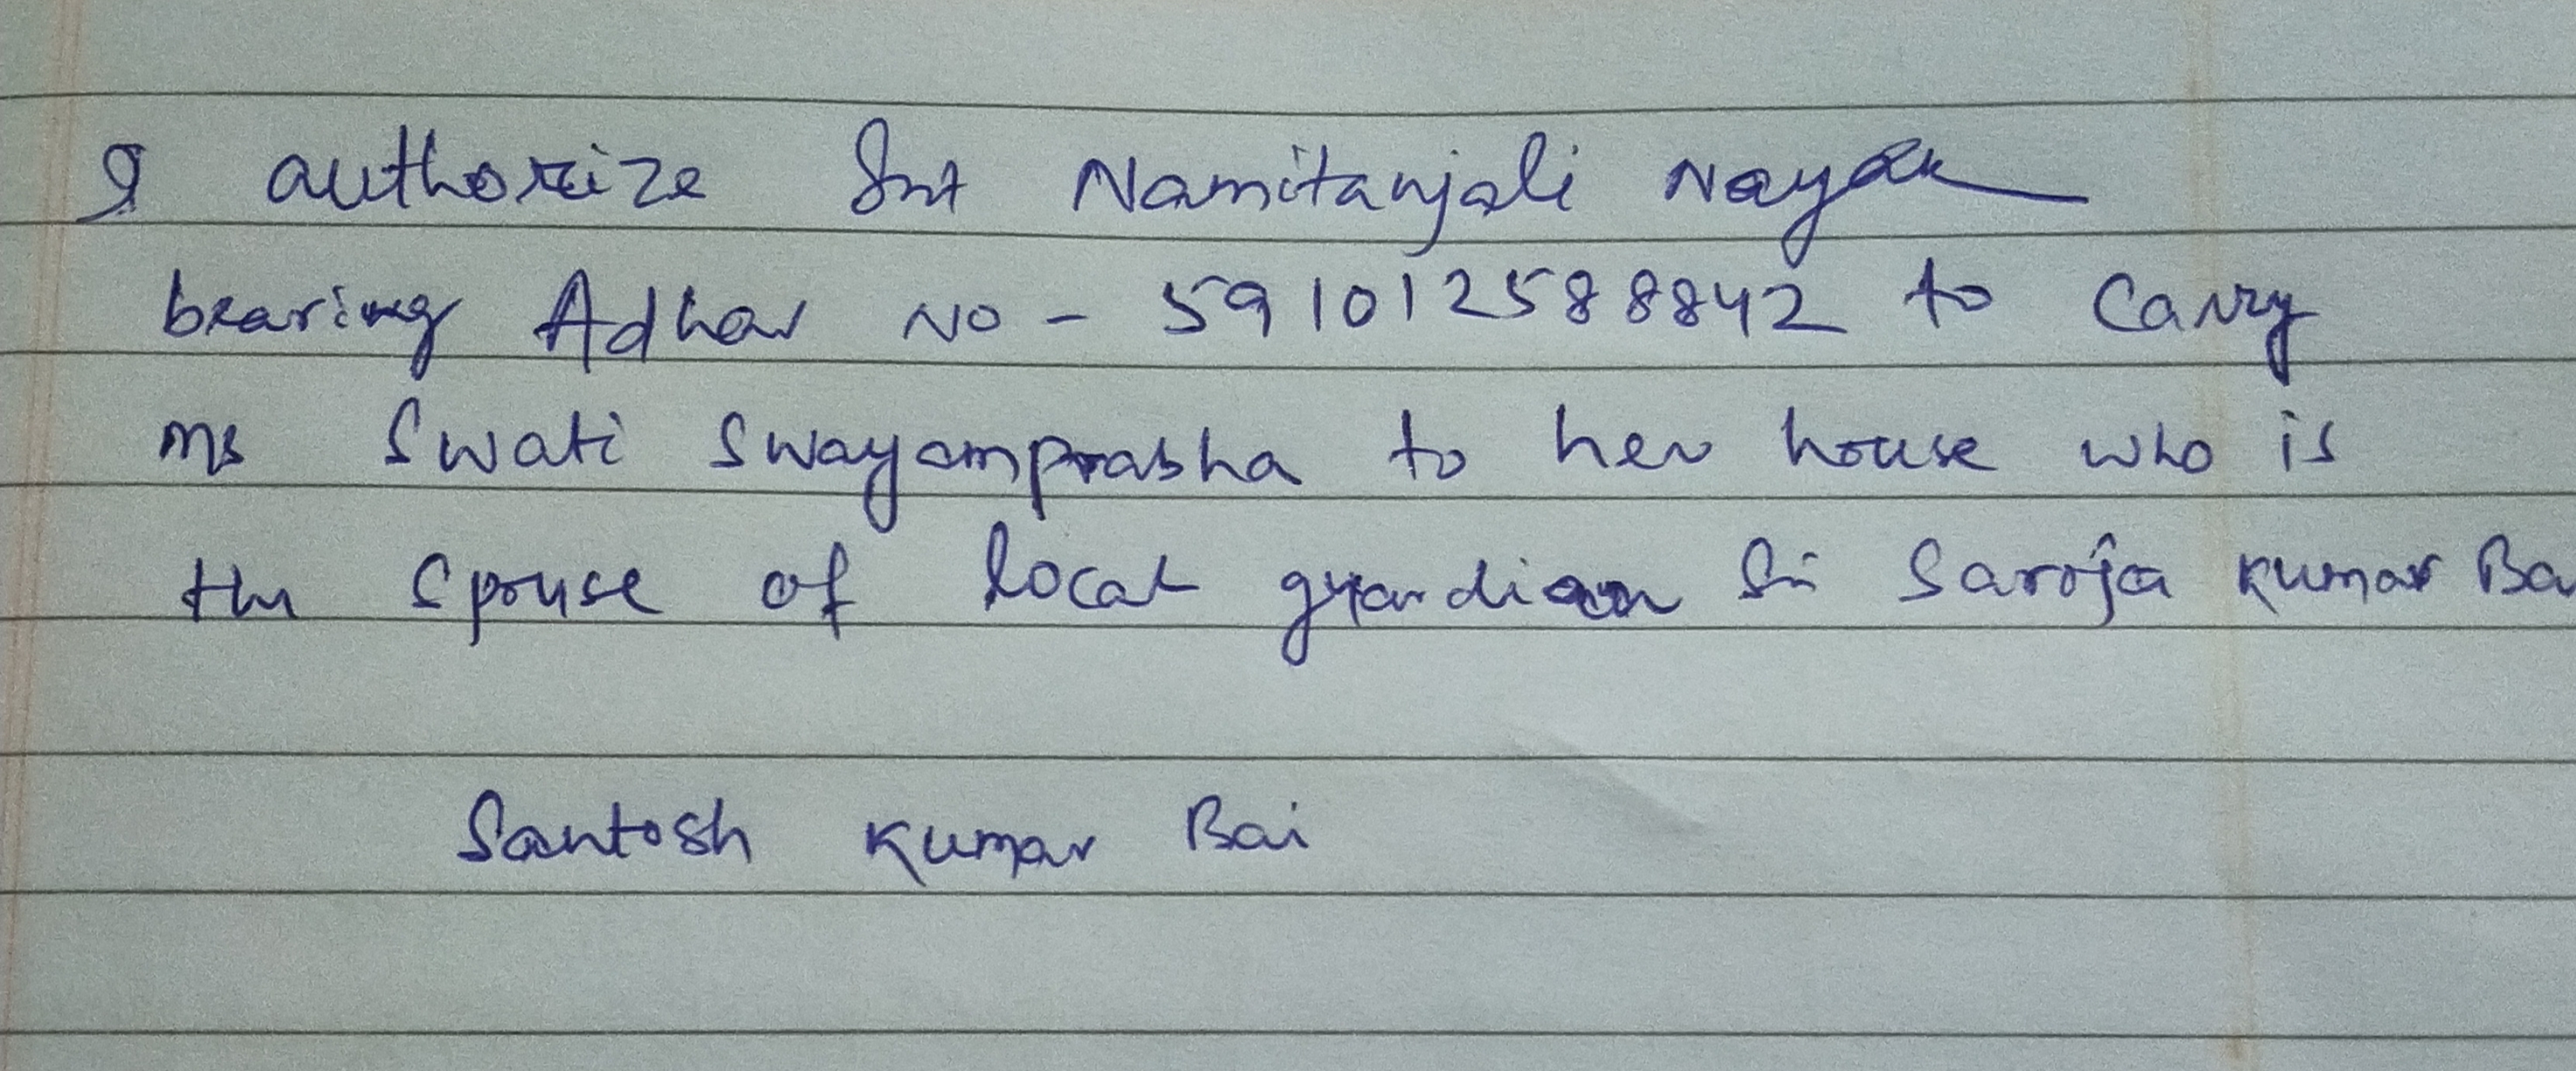 I authorize Smt Namitanjali Nayak
bearing Adhar No - 591012588842 to carry
Ms Swati Swayamprabha to her house who is
the spouse of local guardian Sri Saroja Kumar Ba
Santosh Kumar Bai